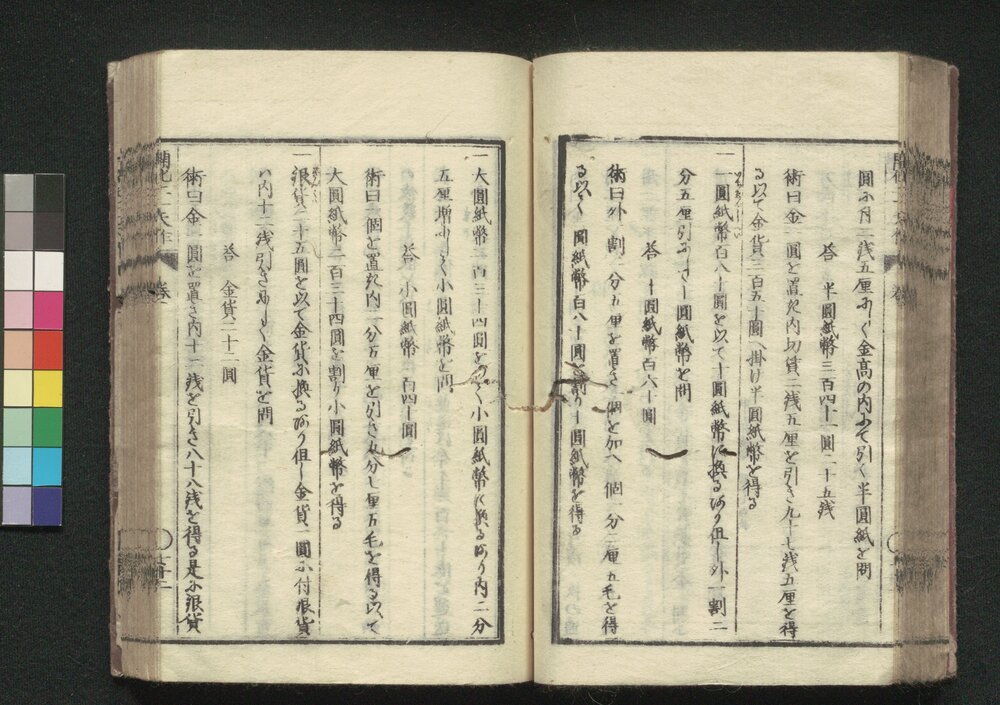 圓ニ付二銭五厘ニして金高の内にて引く半圓紙を問
答　半圓紙幣三百四十一圓二十五銭
術曰金一圓を置き内切賃二銭五厘を引き九十七銭五厘を得
る以て金貨三百五十圓へ掛け半圓紙幣を得る
一一圓紙幣百八十圓を以て十圓紙幣に換るあり但し外一割二
分五厘引ニして十圓紙幣を問
答　十圓紙幣百六十圓
術曰外一割二分五厘を置き一個を加へ一個一分二厘五毛を得
る以て一圓紙幣百八十圓を割り十圓紙幣を得る
一大圓紙幣二百三十四圓を以て小圓紙幣に換るあり内二分
五厘増ニして小圓紙幣を問
答　小圓紙幣二百四十圓
術曰一個を置き内二分五厘を引き九分七厘五毛を得る以て
大圓紙幣二百三十四圓を割り小圓紙幣を得る
一銀貨二十五圓を以て金貨ニ換るあり但し金貨一圓ニ付銀貨
の内十二銭引きニして金貨を問
答　金貨二十二圓
術曰金一圓を置き内十二銭を引き八十八銭を得る是ニ銀貨